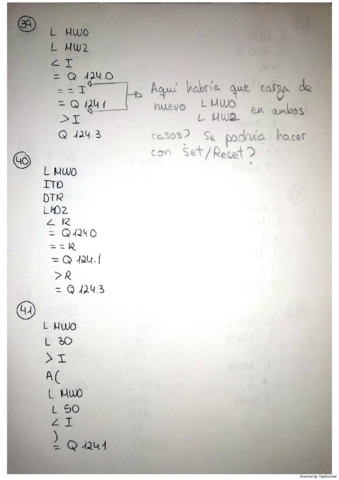 39
L MW0
L MW2
< I
= Q 124.0
== I
= Q 124.1
> I
Q 124.3
Aquí habría que carga de
nuevo L MW0 en ambos
L MW2
casos? Se podría hacer
con Set/Reset?
40
L MW0
ITD
DTR
L MD2
< R
= Q 124.0
== R
= Q 124.1
> R
= Q 124.3
41
L MW0
L 30
> I
A(
L MW0
L 50
< I
)
= Q 124.1
Scanned by TapScanner